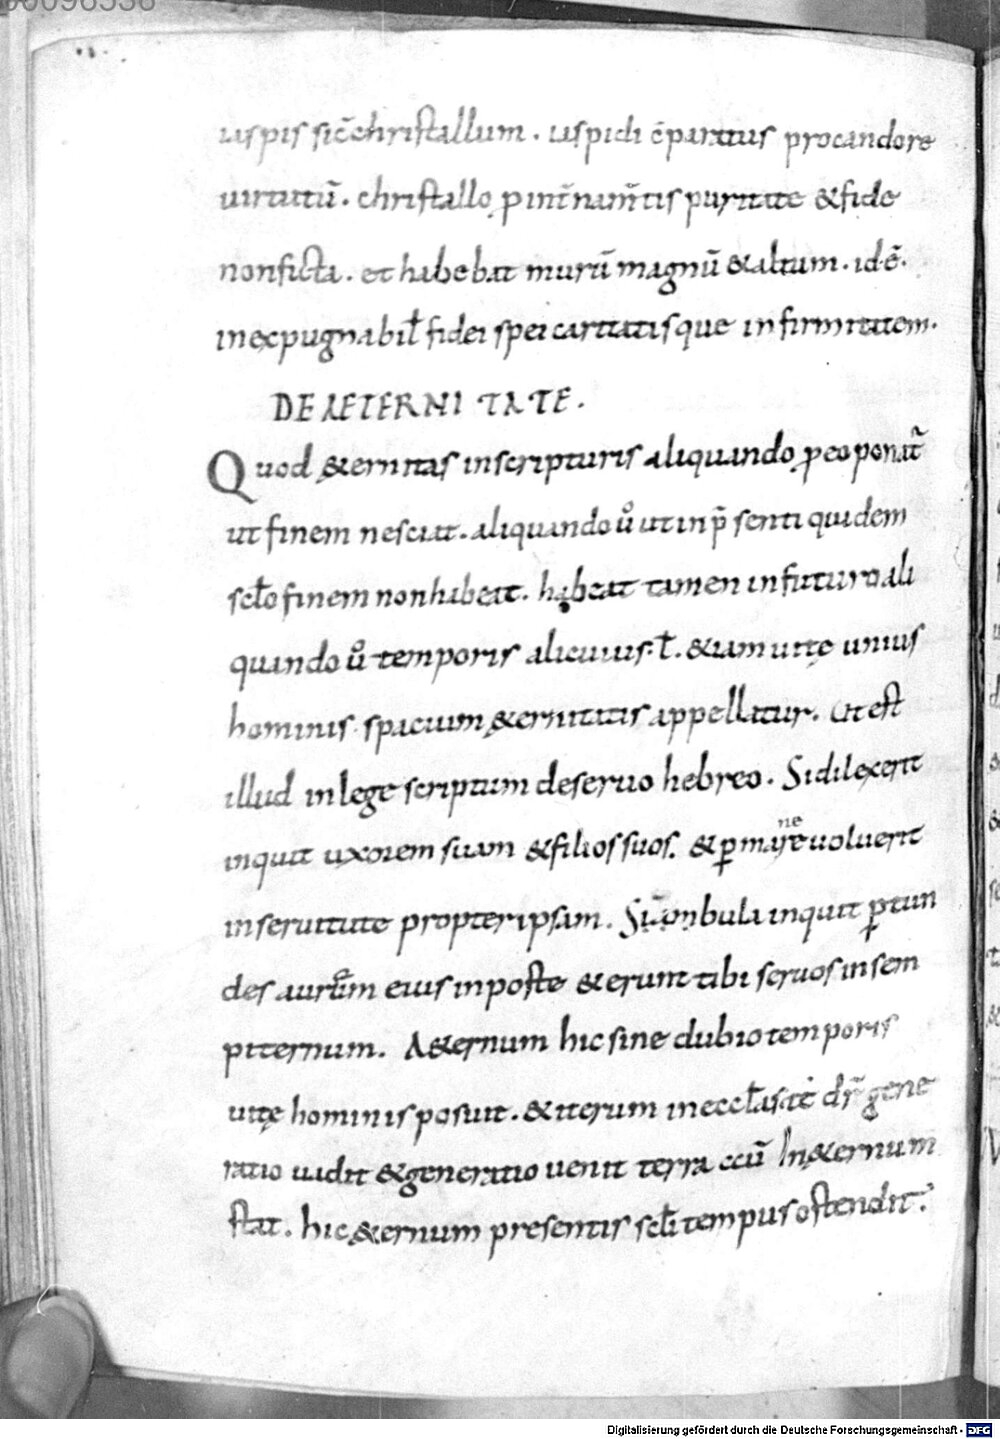 00096538
iaspis sic̄ christallum. iaspidi c̄paratus pro candore
uirtutū. christallo ꝑ int̄nam̄tis puritate & fide
non ficta. et habebat murū magnū & altum. id ē.
inexpugnabil̄ fidei spei caritatisque infirmitatem.
DE AETERNITATE.
Quod ę&ernitas inscripturis aliquando ꝓ eo ponat̄
ut finem nesciat. aliquando ů ut in p̄senti quidem
sc̄lo finem non habeat. habeat tamen in futuro ali
quando ů temporis alicuius. ł. &iam uitę unius
hominis spacium ę&ernitatis appellatur. Ut est
illud in lege scriptum de seruo hebreo. Si dilexerit
inquit uxorem suam & filios suos. & ꝑmane uoluerit
in seruitute propter ipsam. Si ambula inquit ꝑtun
des aurem eius in poste & erunt tibi seruos in sem
piternum. A&ernum hic sine dubio temporis
uitę hominis posuit. & iterum in eccl̄asaṫe dr̄ gene
ratio uadit & generatio uenit terra aū In ę&ernum
stat. hic ę&ernum presentis sc̄li tempus ostendit.
Digitalisierung gefördert durch die Deutsche Forschungsgemeinschaft - DFG